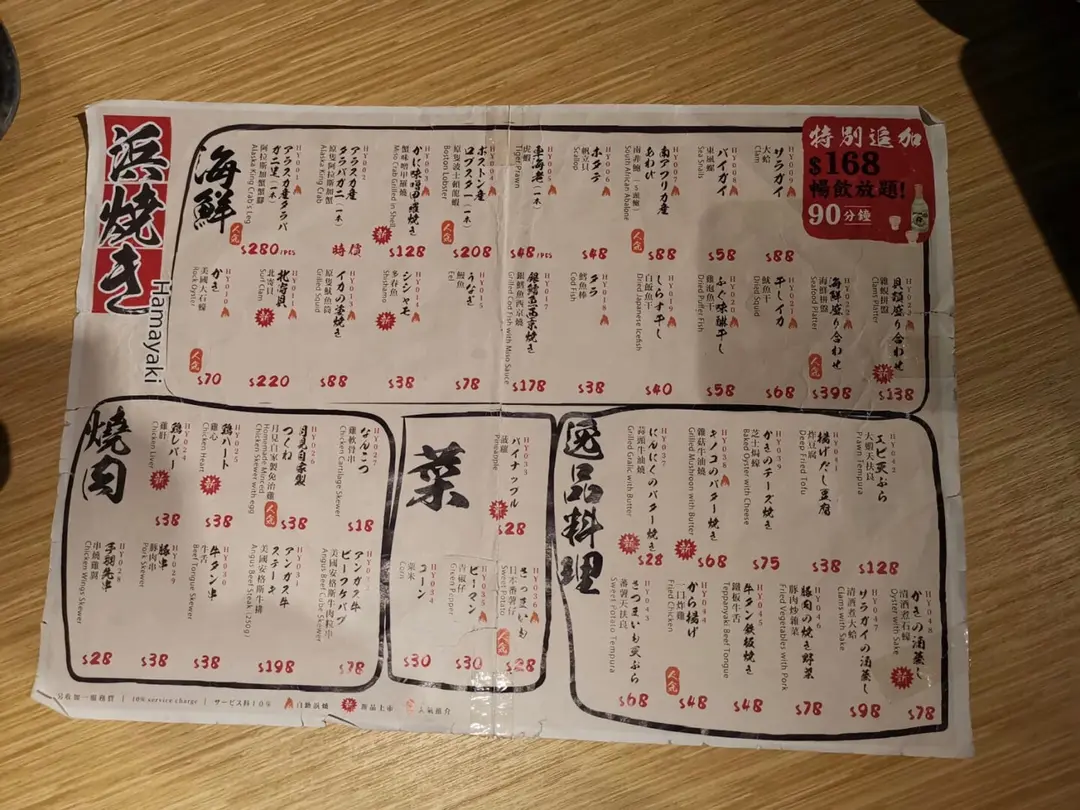 浜焼き
Hamayaki
特別追加
$168
暢飲放題!
90分鐘
海鮮
HY001
アラスカ産タラバ
ガニ足(一本)
阿拉斯加蟹蟹腳
Alaska King Crab's Leg
人気
$280/PCS
アラスカ産
タラバガニ(一本)
原隻阿拉斯加蟹
Alaska King Crab
時價
HY003
かに味噌甲羅焼き
蟹味噌甲羅燒
Miso Crab Grilled in Shell
新
$128
HY004
ボストン産
ロブスター(一本)
原隻波士頓龍蝦
Boston Lobster
人気
$208
HY005
車海老(一本)
虎蝦
Tiger Prawn
$48/PCS
HY006
ホタテ
帆立貝
Scallop
$48
HY007
南アフリカ産
あわび
南非鮑
South African Abalone
人気
$88
HY008
バイガイ
東風螺
Sea Snails
$58
HY009
サラガイ
大蛤
Clam
$88
HY010
かき
美國大石蠔
Rock Oyster
人気
$70
北寄貝
北寄貝
Surf Clam
新
$220
HY013
イカの姿焼き
原隻魷魚筒
Grilled Squid
$88
HY014
シシャモ
多春魚
Shishamo
新
$38
HY015
うなぎ
鰻魚
Eel
$78
HY017
銀鱈西京焼き
銀鱈魚西京燒
Grilled Cod Fish with Miso Sauce
$178
HY018
タラ
鱈魚棒
Cod Fish
$38
HY019
しらす干し
白飯魚干
Dried Japanese Icefish
$40
ふぐ味醂干し
雞泡魚干
Dried Puffer Fish
$58
HY020
干しイカ
魷魚干
Dried Squid
$68
HY022
海鮮盛り合わせ
海鮮拼盤
Seafood Platter
人気
$398
貝類盛り合わせ
雜蜆拼盤
Clams Platter
新
$138
燒肉
HY024
鶏レバー
雞肝
Chicken Liver
新
$38
HY025
鶏ハート
雞心
Chicken Heart
新
$38
HY026
月見自家製
つくね
月見自家製免治雞
Homemade Minced
Chicken Skewer with egg
人気
$38
HY027
なんこつ
雞軟骨串
Chicken Cartilage Skewer
$18
HY028
手羽先串
串燒雞翼
Chicken Wings Skewer
$28
HY029
豚串
豚肉串
Pork Skewer
$38
HY030
牛タン串
牛舌
Beef Tongue Skewer
$38
HY031
アンガス牛
ステーキ
美國安格斯牛排
Angus Beef Steak (250g)
$198
アンガス牛
ビーフケバブ
美國安格斯牛肉粒串
Angus Beef Cube Skewer
$78
菜
HY033
パイナップル
菠蘿
Pineapple
新
$28
HY034
コーン
粟米
Corn
$30
HY035
ピーマン
青椒仔
Green Pepper
$30
HY036
さつまいも
日本番薯仔
Sweet Potato
人気
$28
逸品料理
HY037
にんにくのバター焼き
蒜頭牛油燒
Grilled Gralic with Butter
新
$28
HY038
キノコのバター焼き
雜菇牛油燒
Grilled Mushroom with Butter
新
$68
HY039
かきのチーズ焼き
芝士焗蠔
Baked Oyster with Cheese
$75
HY041
揚げだし豆腐
炸豆腐
Deep Fried Tofu
$38
HY042
エビ天ぷら
大蝦天扶良
Prawn Tempura
$128
HY043
さつまいも天ぷら
蕃薯天扶良
Sweet Potato Tempura
$68
HY044
から揚げ
一口炸雞
Fried Chicken
人気
$48
HY045
牛タン鉄板焼き
鐵板牛舌
Teppanyaki Beef Tongue
$48
HY046
豚肉の焼き野菜
豚肉炒雜菜
Fried Vegetables with Pork
$78
HY047
サラガイの酒蒸し
清酒煮大蛤
Clams with Sake
$98
HY048
かきの酒蒸し
清酒煮石蠔
Oyster with Sake
新
$78
另收加一服務費 | 10% service charge | サービス料10%
自助浜燒
新 新品上市
人気推介